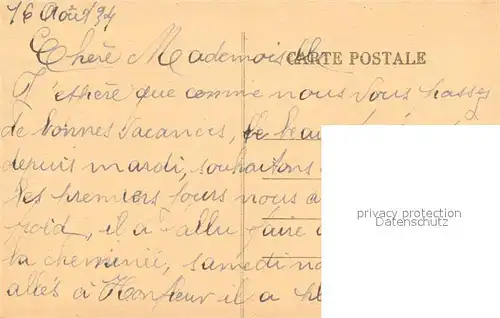 16 Août 34
Chère Mademoiselle
CARTE POSTALE
J'éspère que comme nous vous passez
de bonnes vacances, le beau
depuis mardi, souhaitons
les premiers jours nous a
froid, il a fallu faire
la cheminée, samedi no
allés à Honfleur il a
privacy protection
Datenschutz